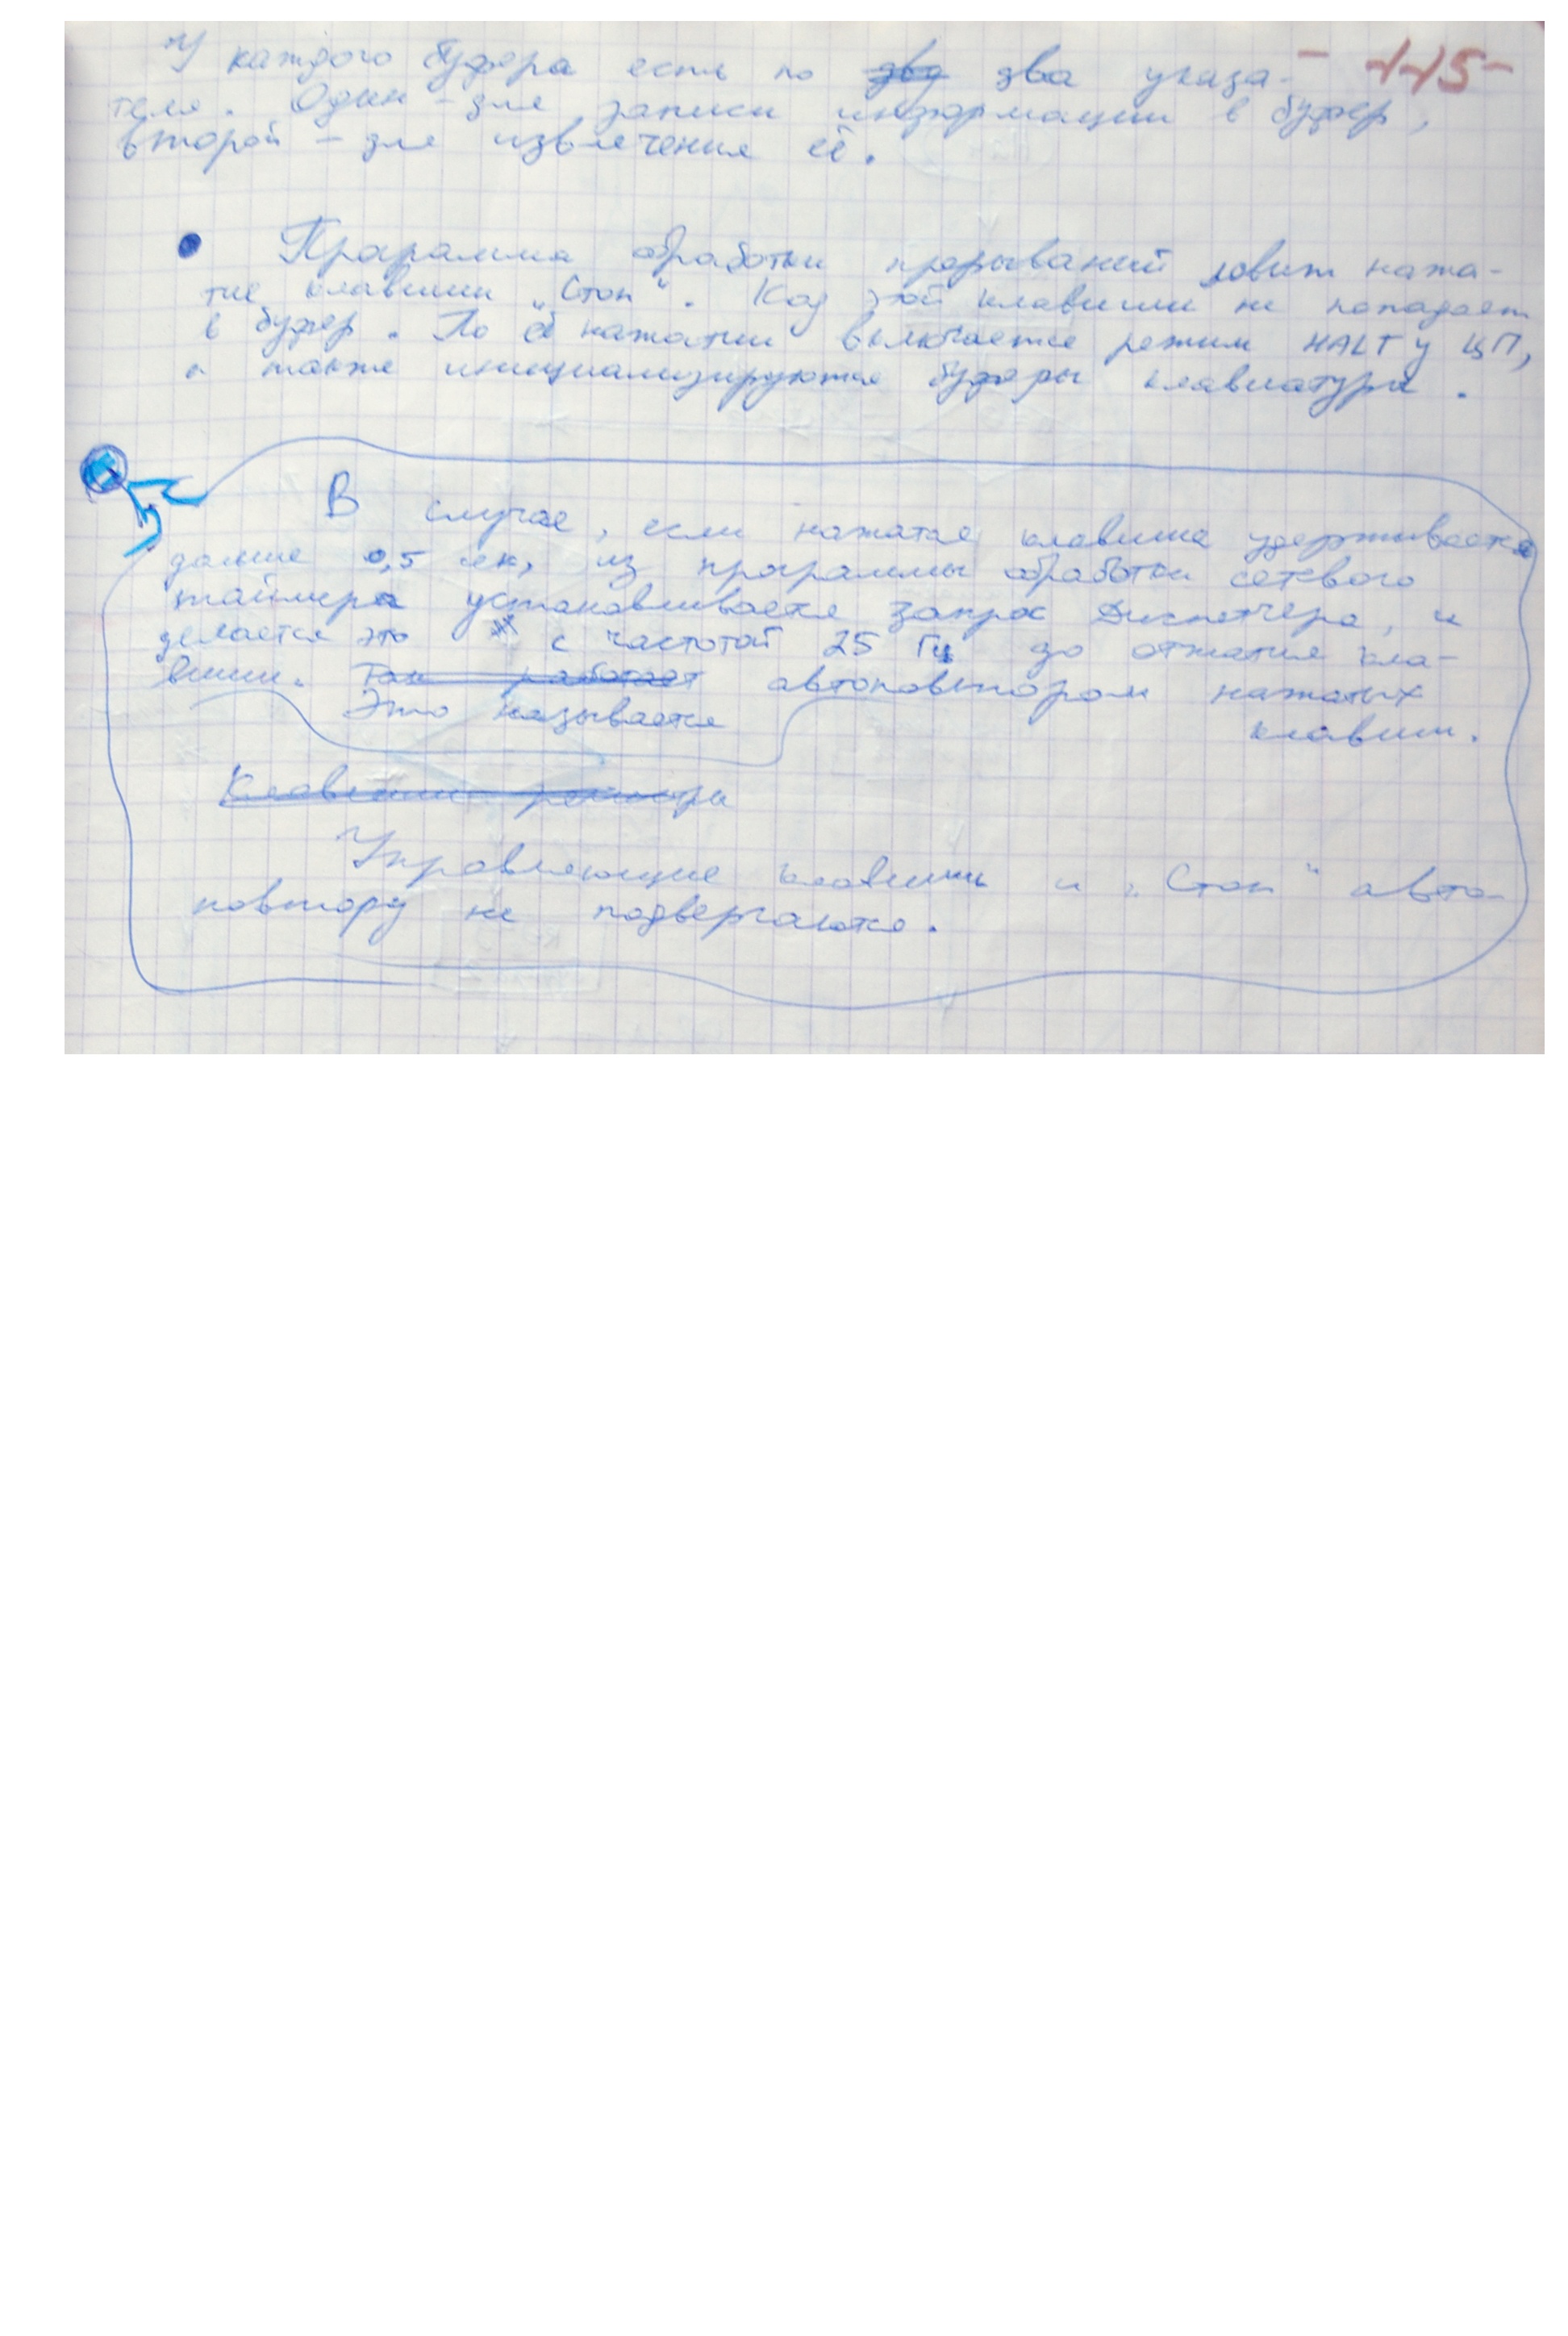 У каждого буфера есть по два указа- - 115 -
теля. Один - для записи информации в буфер,
второй - для извлечения её.
Программа обработки прерываний ловит нажа-
тие клавиши „Стоп“. Код этой клавиши не попадает
в буфер. По её нажатии включается режим HALT у ЦП,
а также инициализируются буферы клавиатуры.
В случае, если нажатая клавиша удерживается
дольше 0,5 сек, из программы обработки сетевого
таймера устанавливается запрос Диспетчера, и
делается это с частотой 25 Гц до отжатия кла-
виши. Так работает автоповтором нажатых
Это называется клавиш.
Клавиши регистра
Управляющие клавиши и „Стоп“ авто-
повтору не подвергаются.